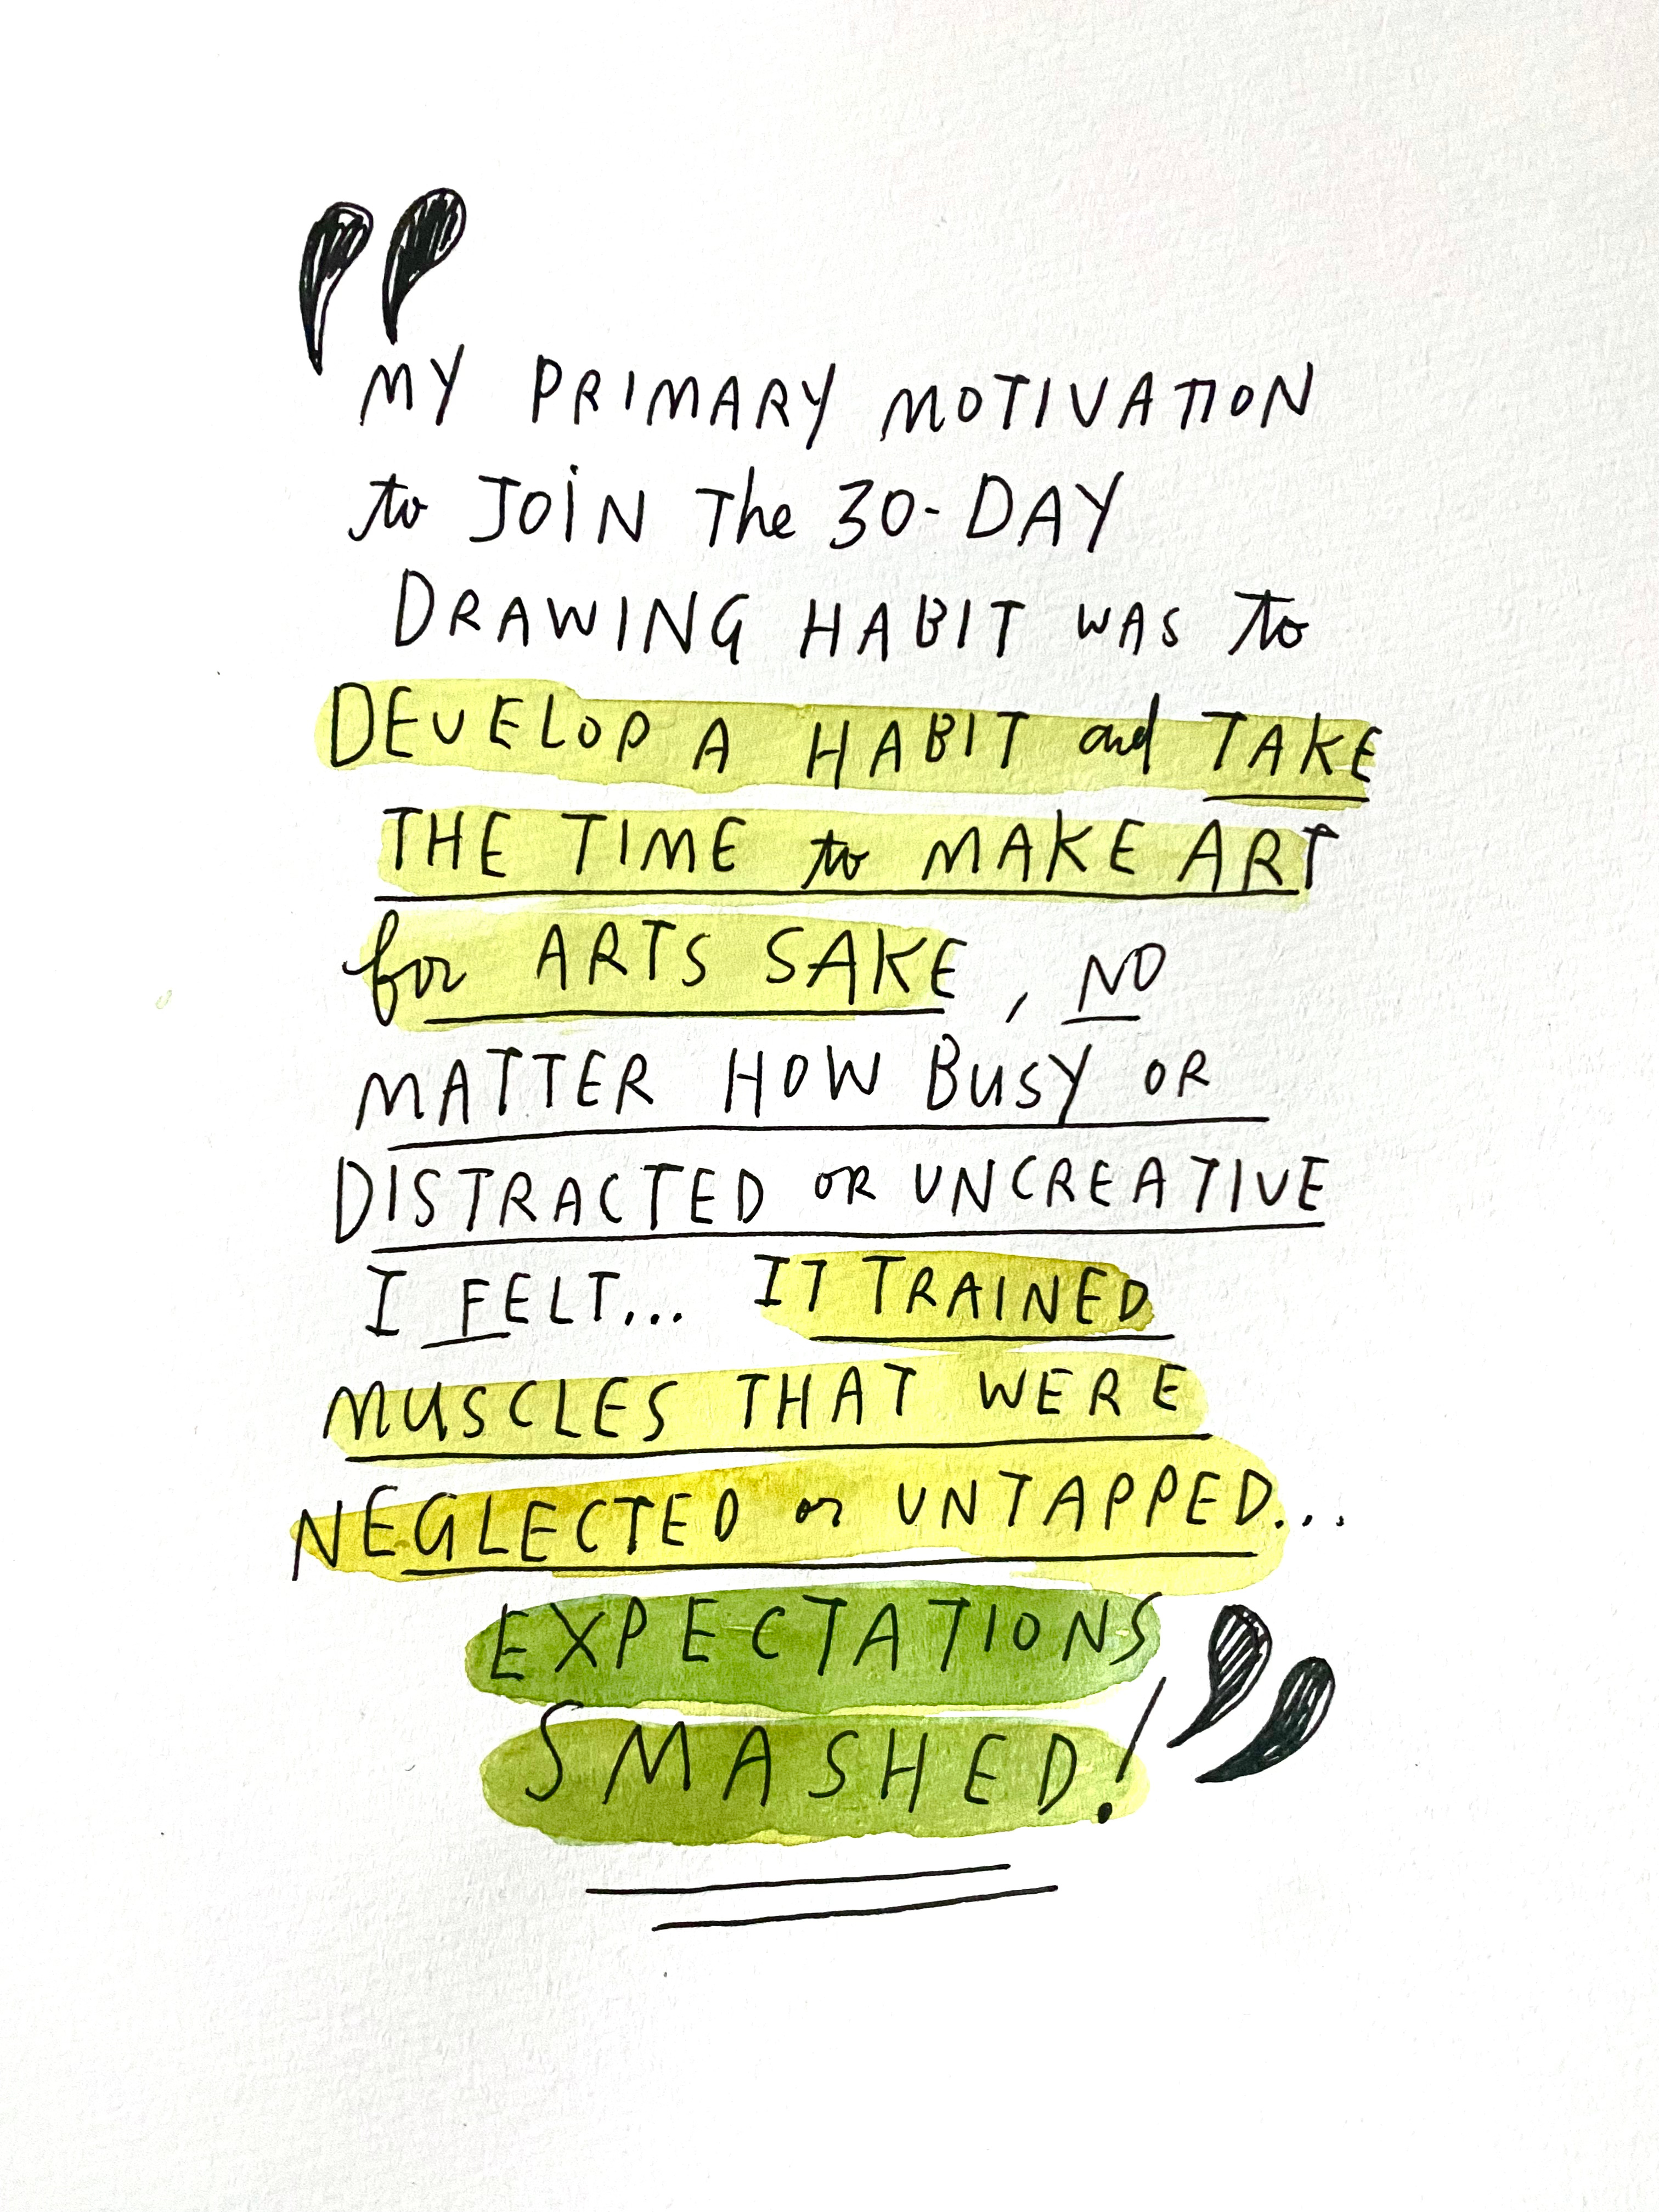 "MY PRIMARY MOTIVATION
to JOIN The 30-DAY
DRAWING HABIT WAS to
DEVELOP A HABIT and TAKE
THE TIME to MAKE ART
for ARTS SAKE, NO
MATTER HOW BUSY OR
DISTRACTED OR UNCREATIVE
I FELT... IT TRAINED
MUSCLES THAT WERE
NEGLECTED or UNTAPPED...
EXPECTATIONS
SMASHED!"